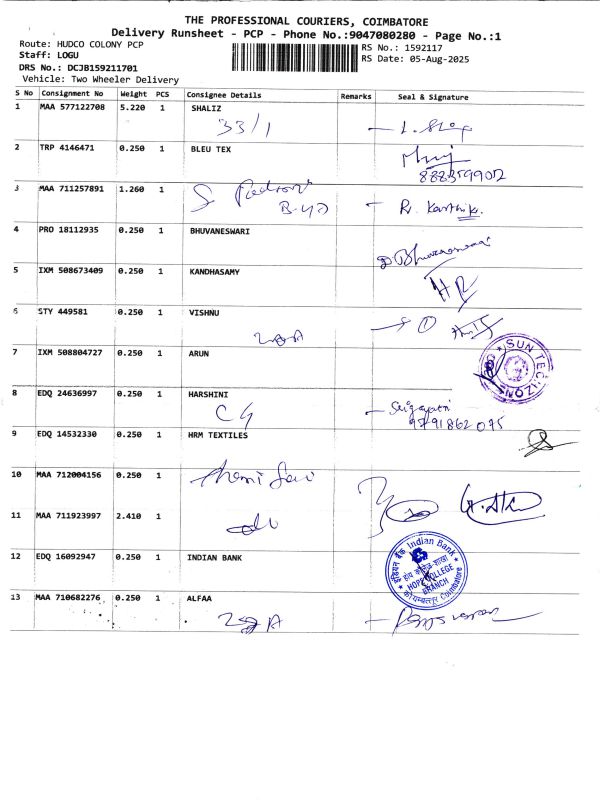 THE PROFESSIONAL COURIERS, COIMBATORE
Delivery Runsheet - PCP - Phone No.:9047080280 - Page No.:1
Route: HUDCO COLONY PCP
RS No.: 1592117
Staff: LOGU
RS Date: 05-Aug-2025
DRS No.: DCJB159211701
Vehicle: Two Wheeler Delivery
S No Consignment No Weight PCS Consignee Details Remarks Seal & Signature
1 MAA 577122708 5.220 1 SHALIZ
33/1
2 TRP 4146471 0.250 1 BLEU TEX
8883599002
3 MAA 711257891 1.260 1
R. Karthik.
4 PRO 18112935 0.250 1 BHUVANESWARI
D Bhuvaneswari
5 IXM 508673409 0.250 1 KANDHASAMY
6 STY 449581 0.250 1 VISHNU
7 IXM 508804727 0.250 1 ARUN
SUN TECH
ZON
8 EDQ 24636997 0.250 1 HARSHINI
C4
9791862095
9 EDQ 14532330 0.250 1 HRM TEXTILES
10 MAA 712004156 0.250 1
11 MAA 711923997 2.410 1
12 EDQ 16092947 0.250 1 INDIAN BANK
इंडियन बैंक Indian Bank
HOPE COLLEGE
BRANCH
कोयम्बत्तूर Coimbatore
13 MAA 710682276 0.250 1 ALFAA